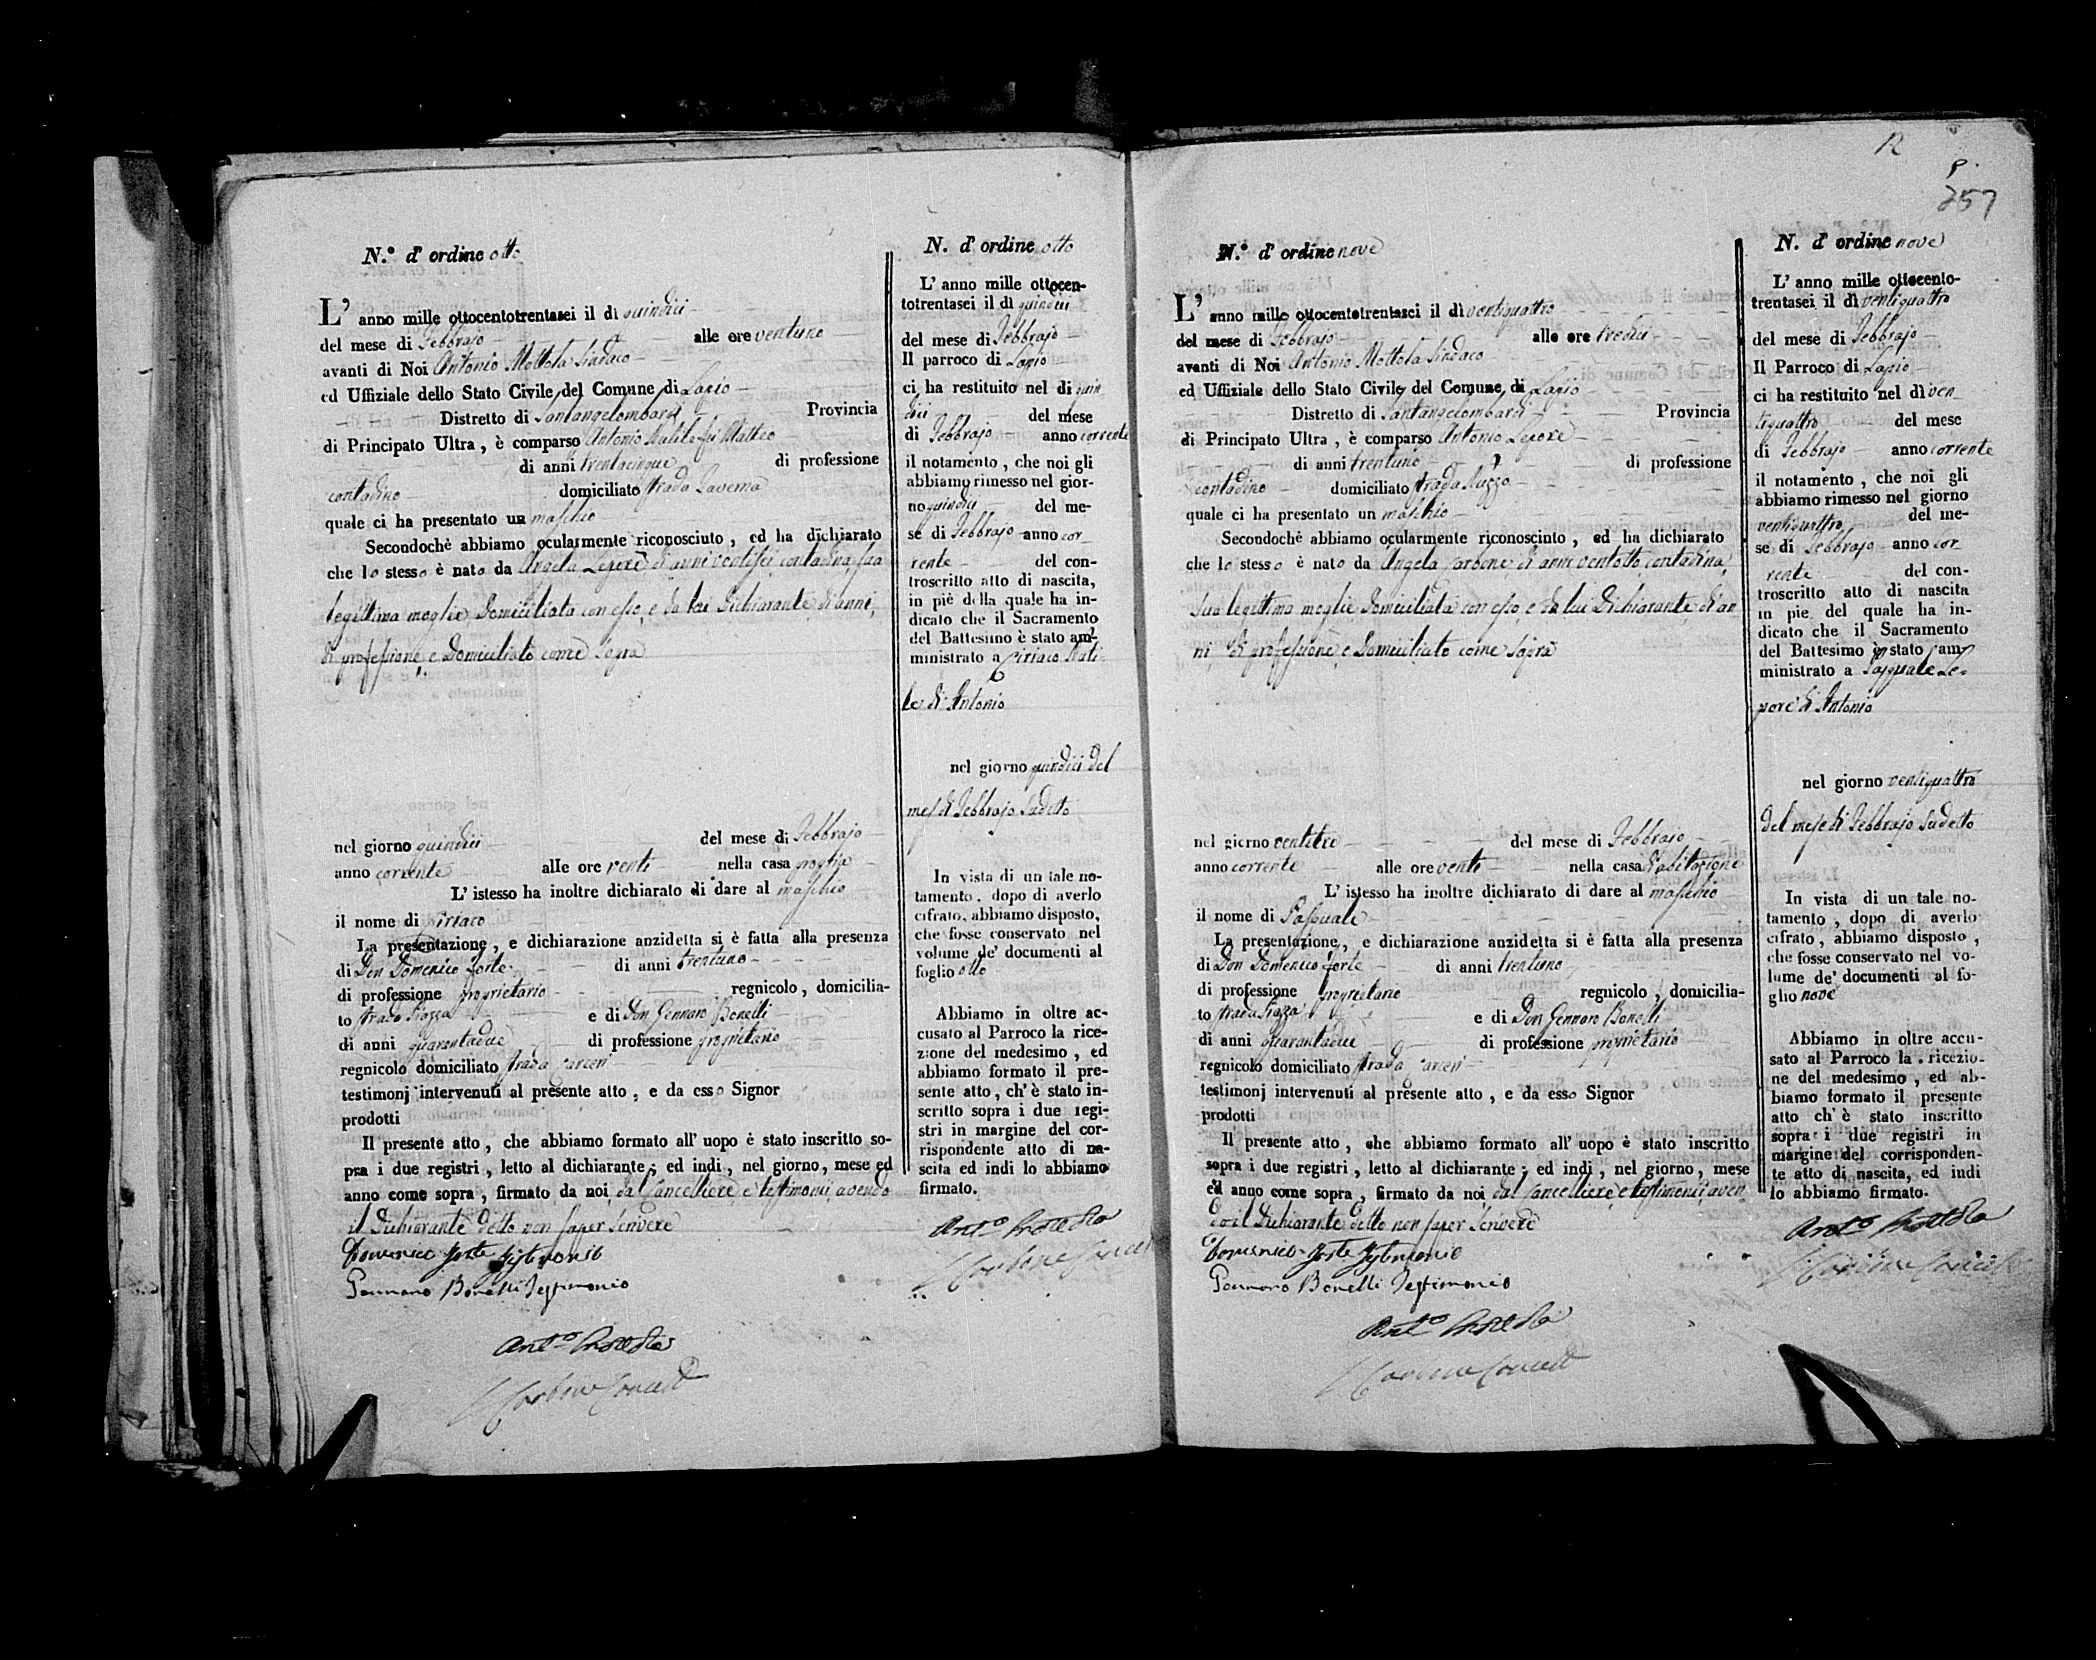 12
9.
257
N.º d' ordine otto
L' anno mille ottocentotrentasei il dì quindici
del mese di Febbrajo alle ore ventuno
avanti di Noi Antonio Mottola Sindaco
ed Uffiziale dello Stato Civile del Comune di Lapio
Distretto di Santangelombardi Provincia
di Principato Ultra, è comparso Antonio Natile fu Matteo
di anni trentacinque di professione
contadino domiciliato strada Taverna
quale ci ha presentato un maschio
Secondochè abbiamo ocularmente riconosciuto, ed ha dichiarato
che lo stesso è nato da Angela Lepore di anni ventisei contadina, sua
legittima moglie domiciliata con esso, e da lui Dichiarante di anni,
di professione, e Domiciliato come sopra
nel giorno quindici del mese di Febbrajo
anno corrente alle ore venti nella casa propria
L' istesso ha inoltre dichiarato di dare al maschio
il nome di Ciriaco
La presentazione, e dichiarazione anzidetta si è fatta alla presenza
di Don Domenico Forte di anni trentuno
di professione proprietario regnicolo, domicilia-
to strada Piazza e di Don Gennaro Bonelli
di anni quarantadue di professione proprietario
regnicolo domiciliato strada Carceri
testimonj intervenuti al presente atto, e da esso Signor
prodotti
Il presente atto, che abbiamo formato all' uopo è stato inscritto so-
pra i due registri, letto al dichiarante; ed indi, nel giorno, mese ed
anno come sopra, firmato da noi dal Cancelliere e testimonii avendo
il Dichiarante detto non saper scrivere
Domenico Forte Testimonio
Gennaro Bonelli Testimonio
Ant.º Mottola
Carbone
N. d' ordine otto
L' anno mille ottocen-
totrentasei il dì quindici
del mese di Febbrajo
Il parroco di Lapio
ci ha restituito nel dì quin
dici del mese
di Febbrajo anno corrente
il notamento, che noi gli
abbiamo rimesso nel gior-
no quindici del me-
se di Febbrajo anno cor_
rente del con-
troscritto atto di nascita,
in piè della quale ha in-
dicato che il Sacramento
del Battesimo è stato am-
ministrato a Ciriaco Nati
le di Antonio
nel giorno quindici del
mese di Febbrajo sudetto
In vista di un tale no-
tamento, dopo di averlo
cifrato, abbiamo disposto,
che fosse conservato nel
volume de' documenti al
foglio otto
Abbiamo in oltre ac-
cusato al Parroco la rice-
zione del medesimo, ed
abbiamo formato il pre-
sente atto, ch' è stato in-
scritto sopra i due regi-
stri in margine del cor-
rispondente atto di na-
scita ed indi lo abbiamo
firmato.
Ant.º Mottola
Carbone
N.º d' ordine nove
L' anno mille ottocentotrentasei il dì ventiquattro
del mese di Febbrajo alle ore tredici
avanti di Noi Antonio Mottola Sindaco
ed Uffiziale dello Stato Civile del Comune di Lapio
Distretto di Santangelombardi Provincia
di Principato Ultra, è comparso Antonio Lepore
di anni trentuno di professione
contadino domiciliato strada
quale ci ha presentato un maschio
Secondochè abbiamo ocularmente riconosciuto, ed ha dichiarato
che lo stesso è nato da Angela Carbone, di anni ventotto, contadina,
sua legittima moglie domiciliata con esso, e da lui Dichiarante, di an
ni, di professione, e Domiciliato come sopra
nel giorno ventitre del mese di Febbrajo
anno corrente alle ore venti nella casa d'abitazione
L' istesso ha inoltre dichiarato di dare al maschio
il nome di Pasquale
La presentazione, e dichiarazione anzidetta si è fatta alla presenza
di Don Domenico Forte di anni trentuno
di professione proprietario regnicolo, domicilia-
to strada Piazza e di Don Gennaro Bonelli
di anni quarantadue di professione proprietario
regnicolo domiciliato strada Carceri
testimonj intervenuti al presente atto, e da esso Signor
prodotti
Il presente atto, che abbiamo formato all' uopo è stato inscritto
sopra i due registri, letto al dichiarante; ed indi, nel giorno, mese
ed anno come sopra, firmato da noi dal Cancelliere, e testimonii, aven
do il Dichiarante detto non saper scrivere
Domenico Forte Testimonio
Gennaro Bonelli Testimonio
Ant.º Mottola
Carbone
N. d' ordine nove
L' anno mille ottocento-
trentasei il dì ventiquattro
del mese di Febbrajo
Il Parroco di Lapio
ci ha restituito nel dì ven
tiquattro del mese
di Febbrajo anno corrente
il notamento, che noi gli
abbiamo rimesso nel giorno
ventiquattro del me-
se di Febbrajo anno cor_
rente del con-
troscritto atto di nascita
in pie del quale ha in-
dicato che il Sacramento
del Battesimo è stato am-
ministrato a Pasquale Le-
pore di Antonio
nel giorno ventiquattro
del mese di Febbrajo sudetto
In vista di un tale no-
tamento, dopo di averlo
cifrato, abbiamo disposto,
che fosse conservato nel vo-
lume de' documenti al fo-
glio nove
Abbiamo in oltre accu-
sato al Parroco la ricezio-
ne del medesimo, ed ab-
biamo formato il presente
atto ch' è stato inscritto
sopra i due registri in
margine del corrisponden-
te atto di nascita, ed indi
lo abbiamo firmato.
Ant.º Mottola
Carbone